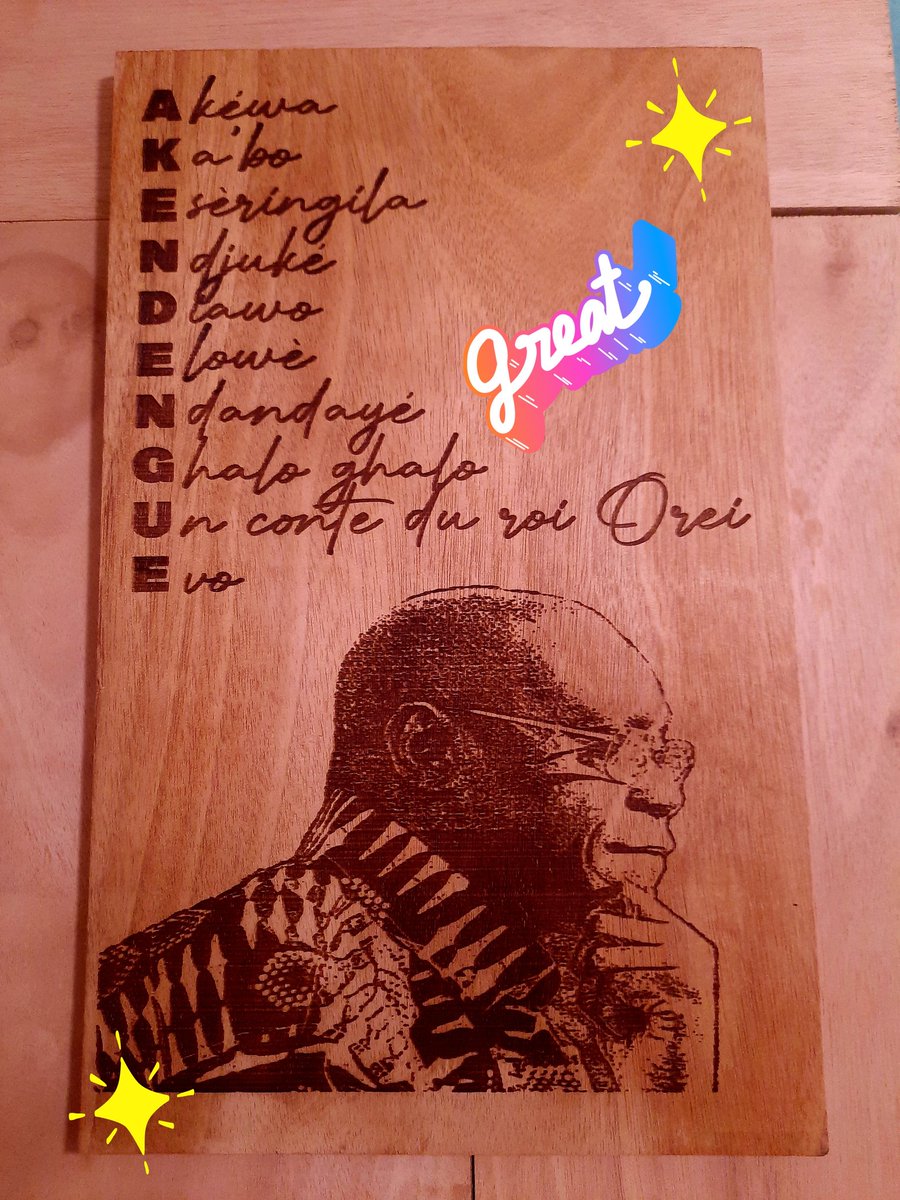 Akéwa
Ka'bo
Esèringila
Ndjuké
Diawo
Elowè
Ndandayé
Ghalo ghalo
Un conte du roi Orei
Evo
great